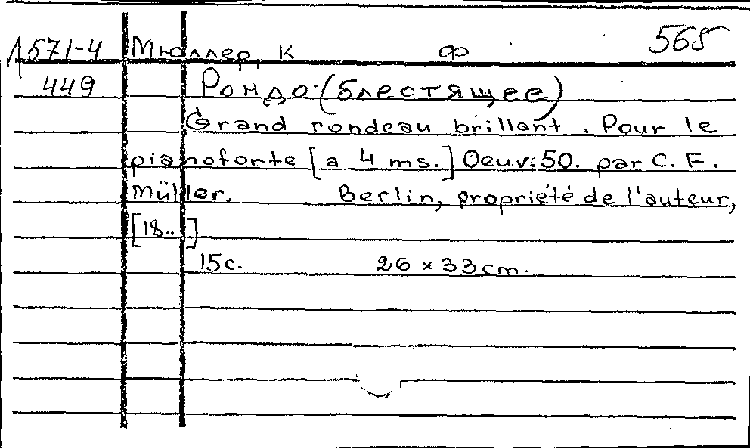 Л571-4 Мюллер, К ф 565
449 Рондо (блестящее)
Grand rondeau brillant. Pour le
pianoforte [a 4 ms.] Oeuv: 50. par C. F.
Müller. Berlin, propriété de l'auteur,
[18..]
15c. 26 × 33 cm.